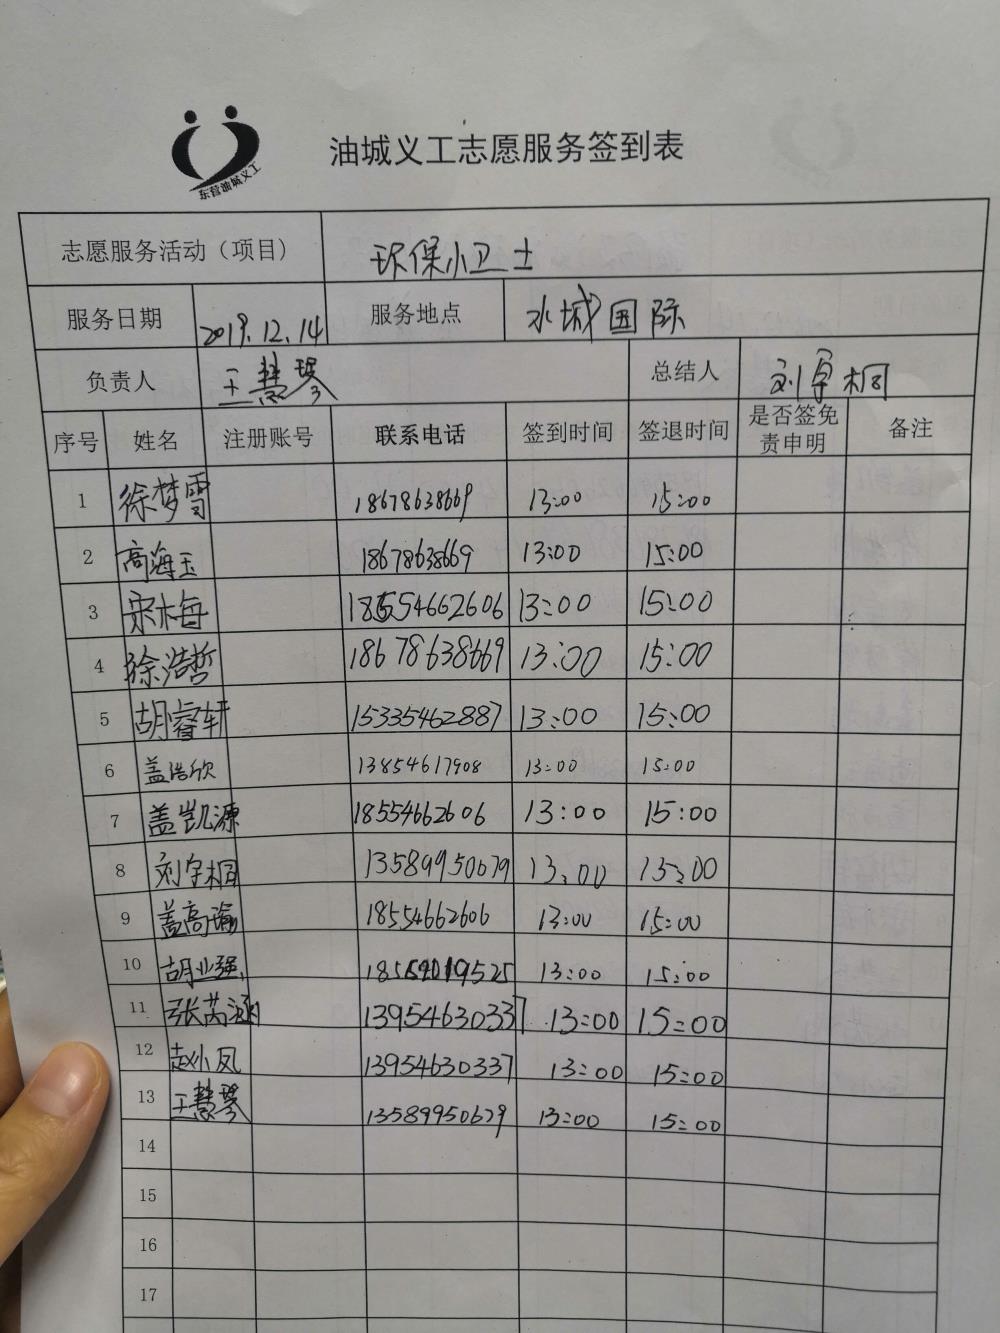 东营油城义工
油城义工志愿服务签到表
志愿服务活动（项目） 环保小卫士
服务日期 2019.12.14 服务地点 水城国际
负责人 王慧琴 总结人 刘宇桐
序号 姓名 注册账号 联系电话 签到时间 签退时间 是否签免责申明 备注
1 徐梦雪 18678638669 13:00 15:00
2 高海玉 18678638669 13:00 15:00
3 宋梅 18554662606 13:00 15:00
4 徐浩哲 18678638669 13:00 15:00
5 胡睿轩 15335462887 13:00 15:00
6 盖浩欣 13854617908 13:00 15:00
7 盖凯源 18554662606 13:00 15:00
8 刘宇桐 13589950679 13:00 15:00
9 盖高瑜 18554662606 13:00 15:00
10 胡业强 13:00 15:00
11 张芮涵 13954630337 13:00 15:00
12 赵小凤 13954630337 13:00 15:00
13 王慧琴 13589950679 13:00 15:00
14
15
16
17